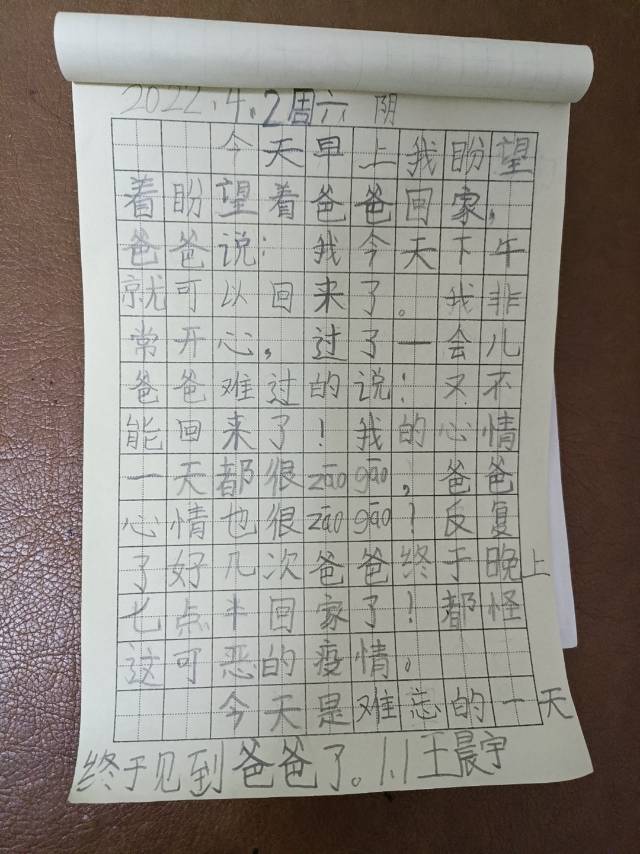 2022.4.2周六 阴
今天早上我盼望
着盼望着爸爸回家,
爸爸说: 我今天下午
就可以回来了。我非
常开心, 过了一会儿
爸爸难过的说: 又不
能回来了! 我的心情
一天都很zāogāo, 爸爸
心情也很zāogāo! 反复
了好几次爸爸终于晚上
七点半回家了! 都怪
这可恶的疫情。
今天是难忘的一天
终于见到爸爸了。 王晨宇